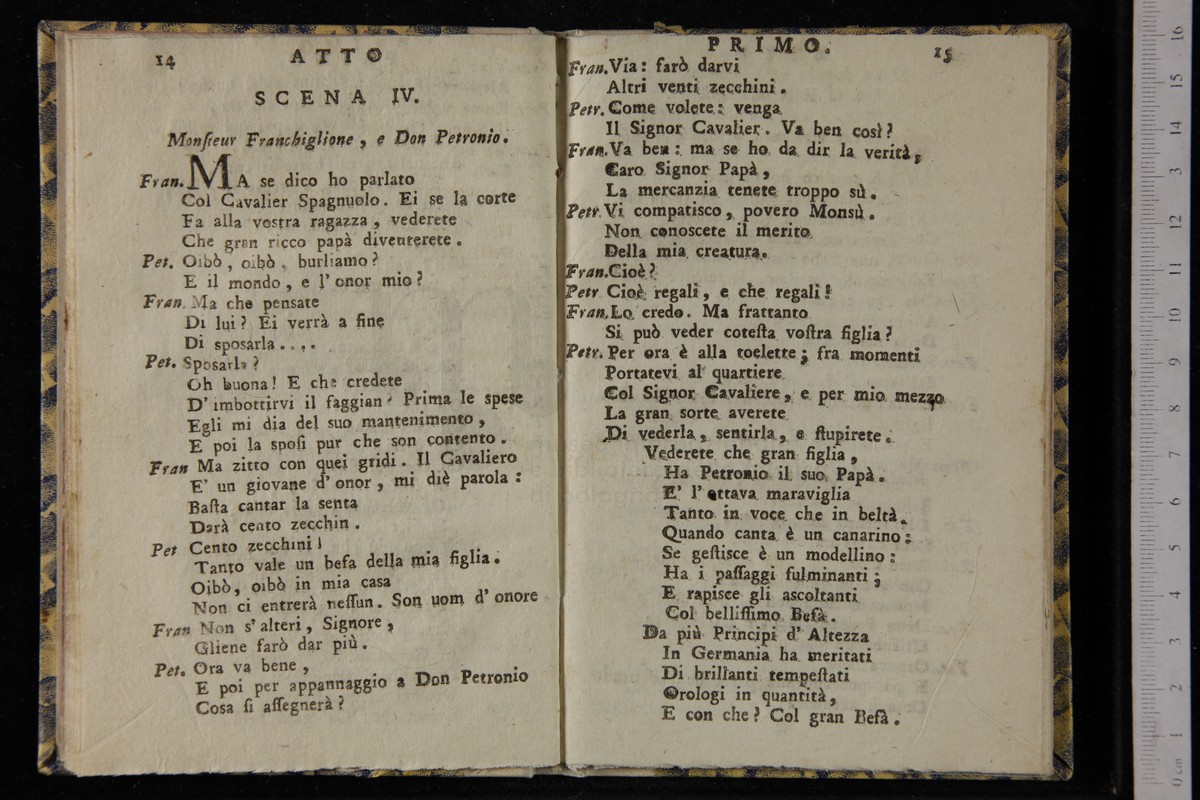 14 ATTO
SCENA IV.
Monsieur Franchiglione, e Don Petronio.
Fran. MA se dico ho parlato
Col Cavalier Spagnuolo. Ei se la corte
Fa alla vostra ragazza, vederete
Che gran ricco papà diventerete.
Pet. Oibò, oibò, burliamo?
E il mondo, e l'onor mio?
Fran. Ma che pensate
Di lui? Ei verrà a fine
Di sposarla....
Pet. Sposarla?
Oh buona! E che credete
D'imbottirvi il faggian? Prima le spese
Egli mi dia del suo mantenimento,
E poi la sposi pur che son contento.
Fran Ma zitto con quei gridi. Il Cavaliero
E' un giovane d'onor, mi diè parola:
Basta cantar la senta
Darà cento zecchin.
Pet Cento zecchini!
Tanto vale un befa della mia figlia.
Oibò, oibò in mia casa
Non ci entrerà nessun. Son uom d'onore
Fran Non s'alteri, Signore,
Gliene farò dar più.
Pet. Ora va bene,
E poi per appannaggio a Don Petronio
Cosa si assegnerà?
PRIMO. 15
Fran. Via: farò darvi
Altri venti zecchini.
Petr. Come volete: venga
Il Signor Cavalier. Va ben così?
Fran. Va ben: ma se ho da dir la verità,
Caro Signor Papà,
La mercanzia tenete troppo sù.
Petr. Vi compatisco, povero Monsù.
Non conoscete il merito
Della mia creatura.
Fran. Cioè?
Petr Cioè regali, e che regali!
Fran. Lo credo. Ma frattanto
Si può veder cotesta vostra figlia?
Petr. Per ora è alla toelette; fra momenti
Portatevi al quartiere
Col Signor Cavaliere, e per mio mezzo
La gran sorte averete
Di vederla, sentirla, e stupirete.
Vederete che gran figlia,
Ha Petronio il suo Papà.
E' l'ottava maraviglia
Tanto in voce che in beltà.
Quando canta è un canarino:
Se gestisce è un modellino:
Ha i passaggi fulminanti;
E rapisce gli ascoltanti
Col bellissimo Befà.
Da più Principi d'Altezza
In Germania ha meritati
Di brillanti tempestati
Orologi in quantità,
E con che? Col gran Befà.